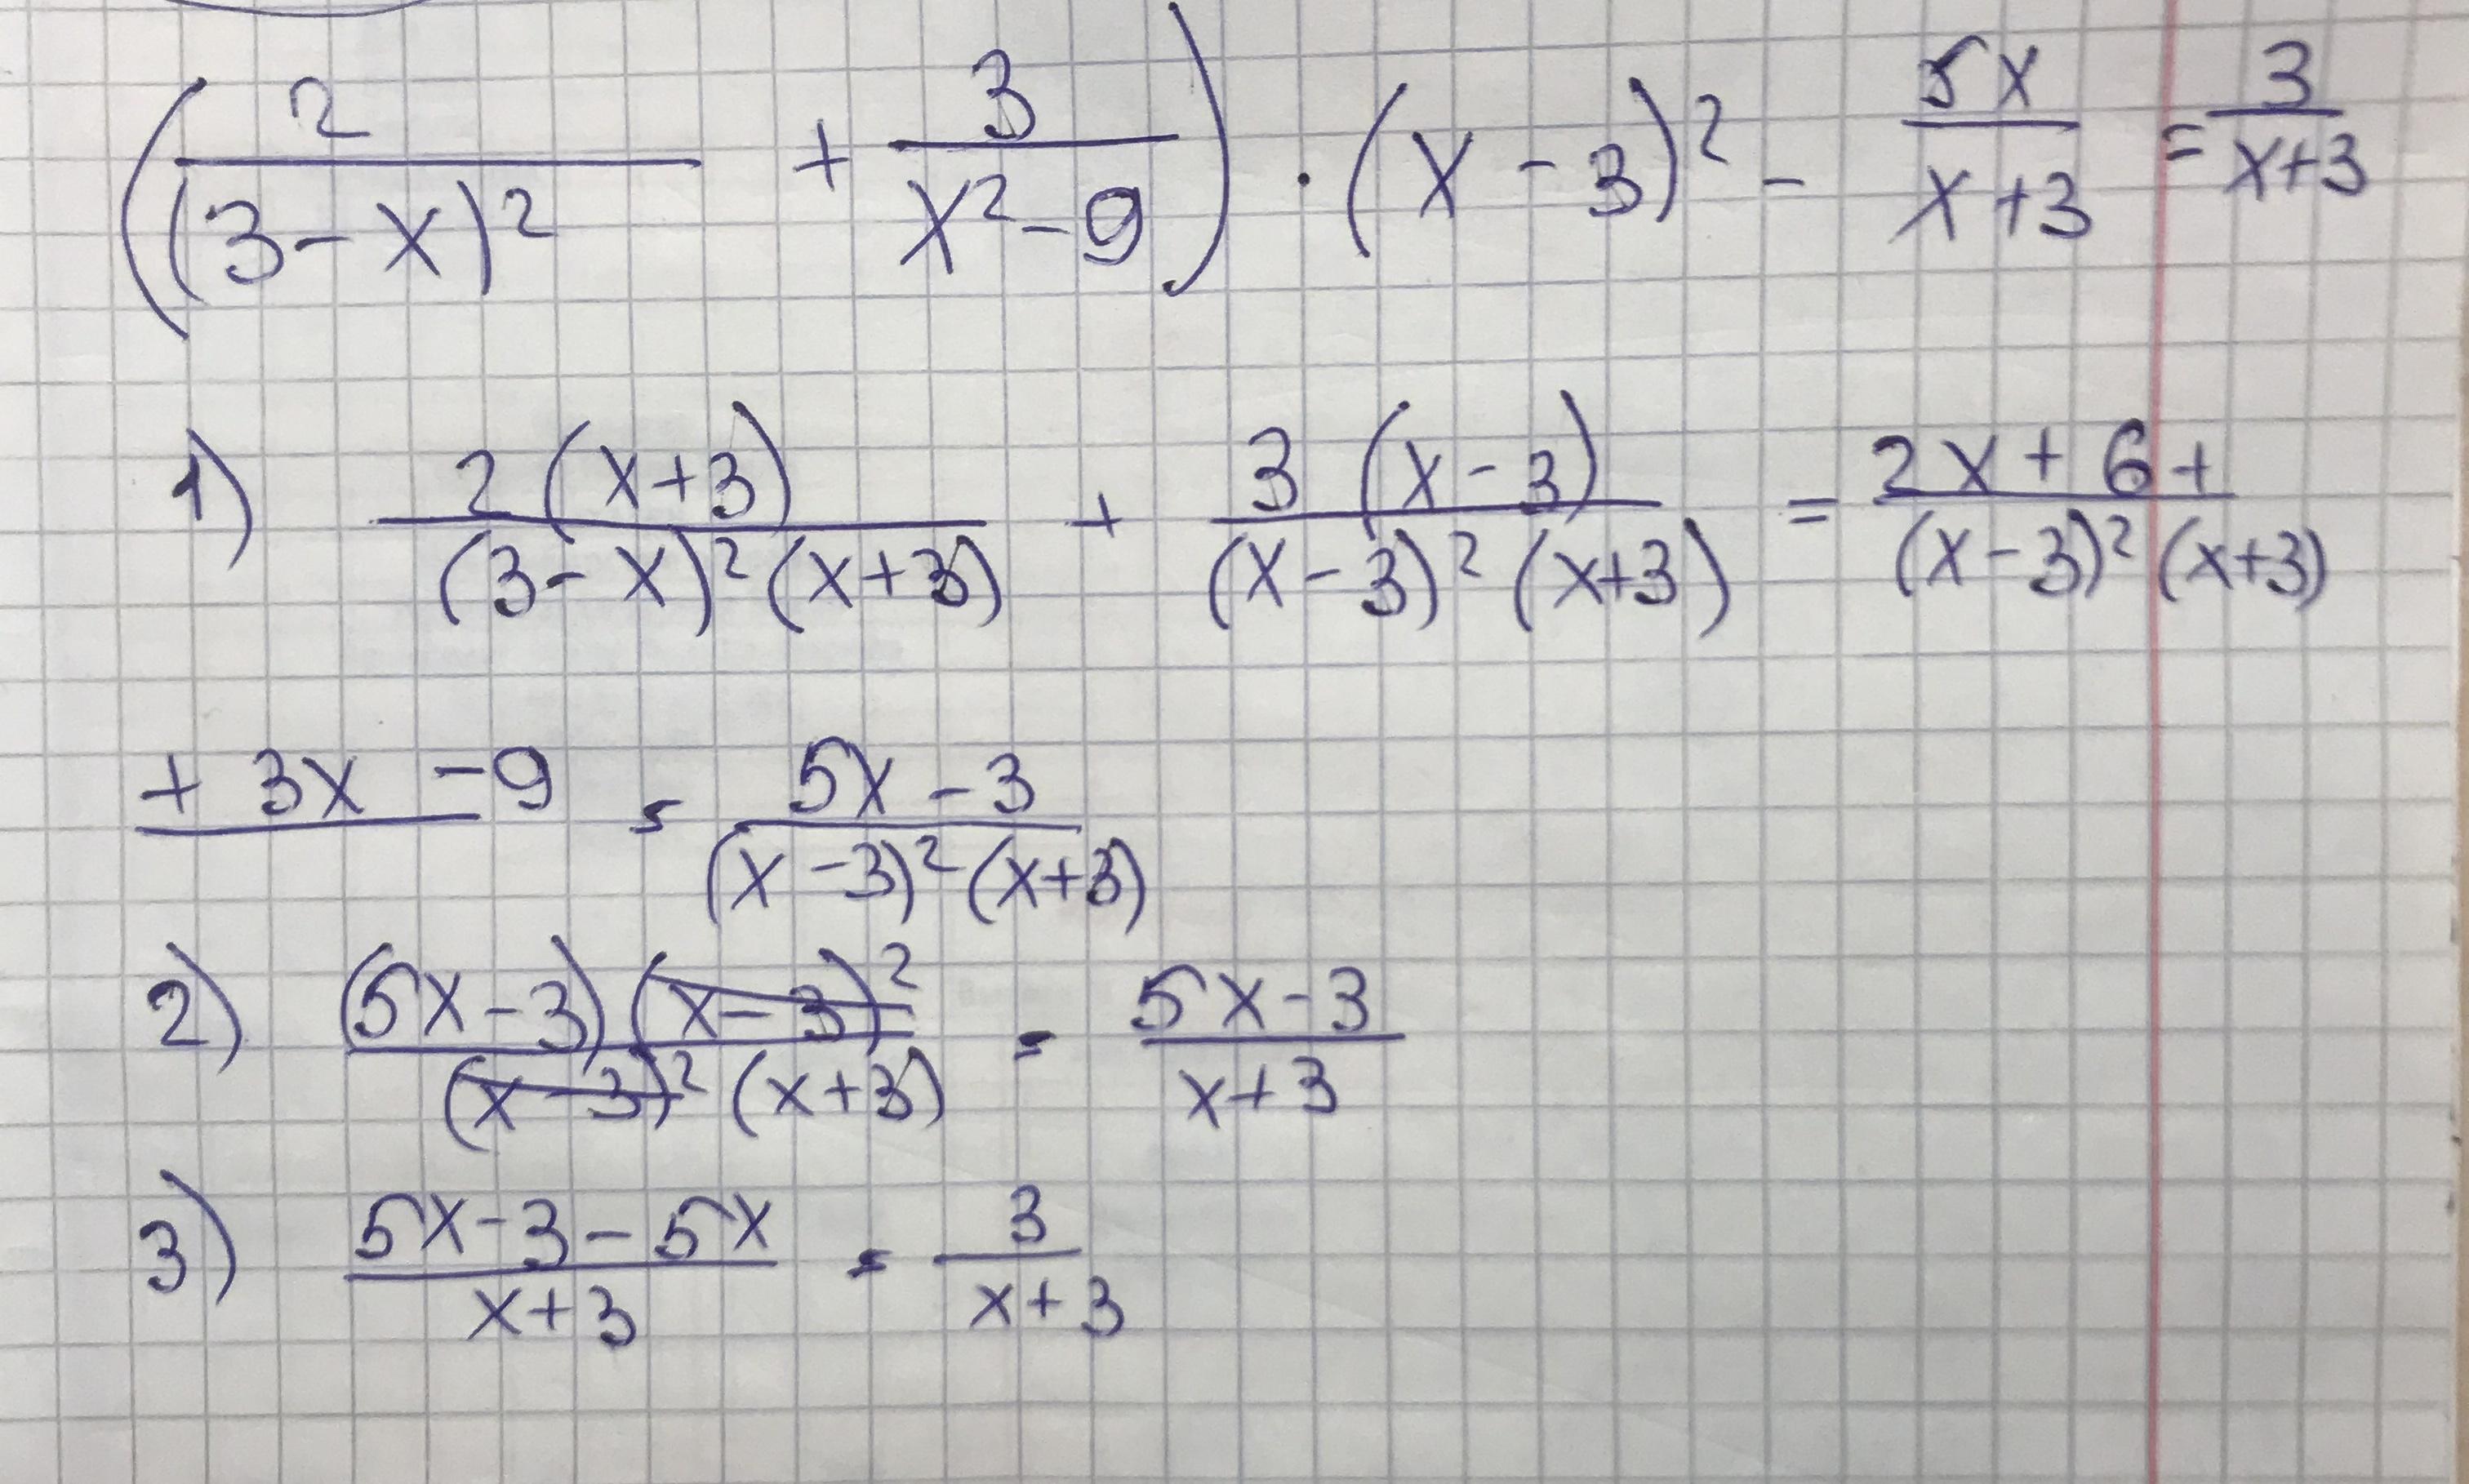 (2/(3-x)² + 3/(x²-9)) · (x-3)² - 5x/(x+3) = 3/(x+3)
1) 2(x+3)/((3-x)²(x+3)) + 3(x-3)/((x-3)²(x+3)) = 2x+6+/((x-3)²(x+3))
+3x-9 = (5x-3)/((x-3)²(x+3))
2) (5x-3)(x-3)²/((x-3)²(x+3)) = (5x-3)/(x+3)
3) (5x-3-5x)/(x+3) = 3/(x+3)